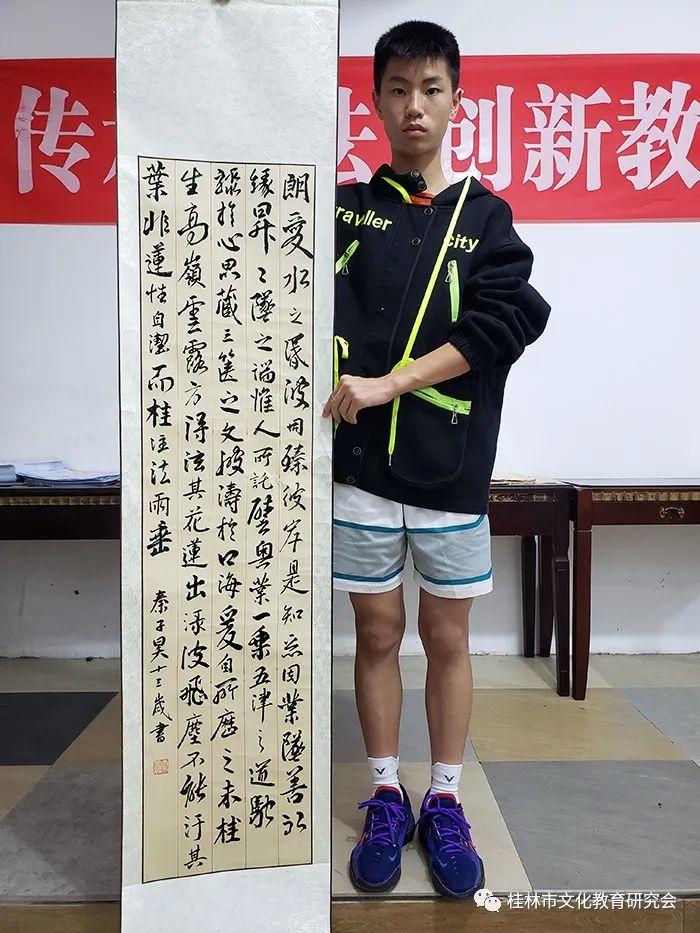 传 创新教
raveller city
朗愛水之昏波同臻彼岸是知惡因業墜善以
緣昇〻墜之端惟人所託壁奥業一乗五津之道馳
驟於心思藏三篋之文波濤於口海爰自所歷之未桂
生高嶺雲露方得泫其花蓮出渌波飛塵不能汙其
葉非蓮性自潔而桂注法雨垂
秦子昊十三歲書
桂林市文化教育研究会